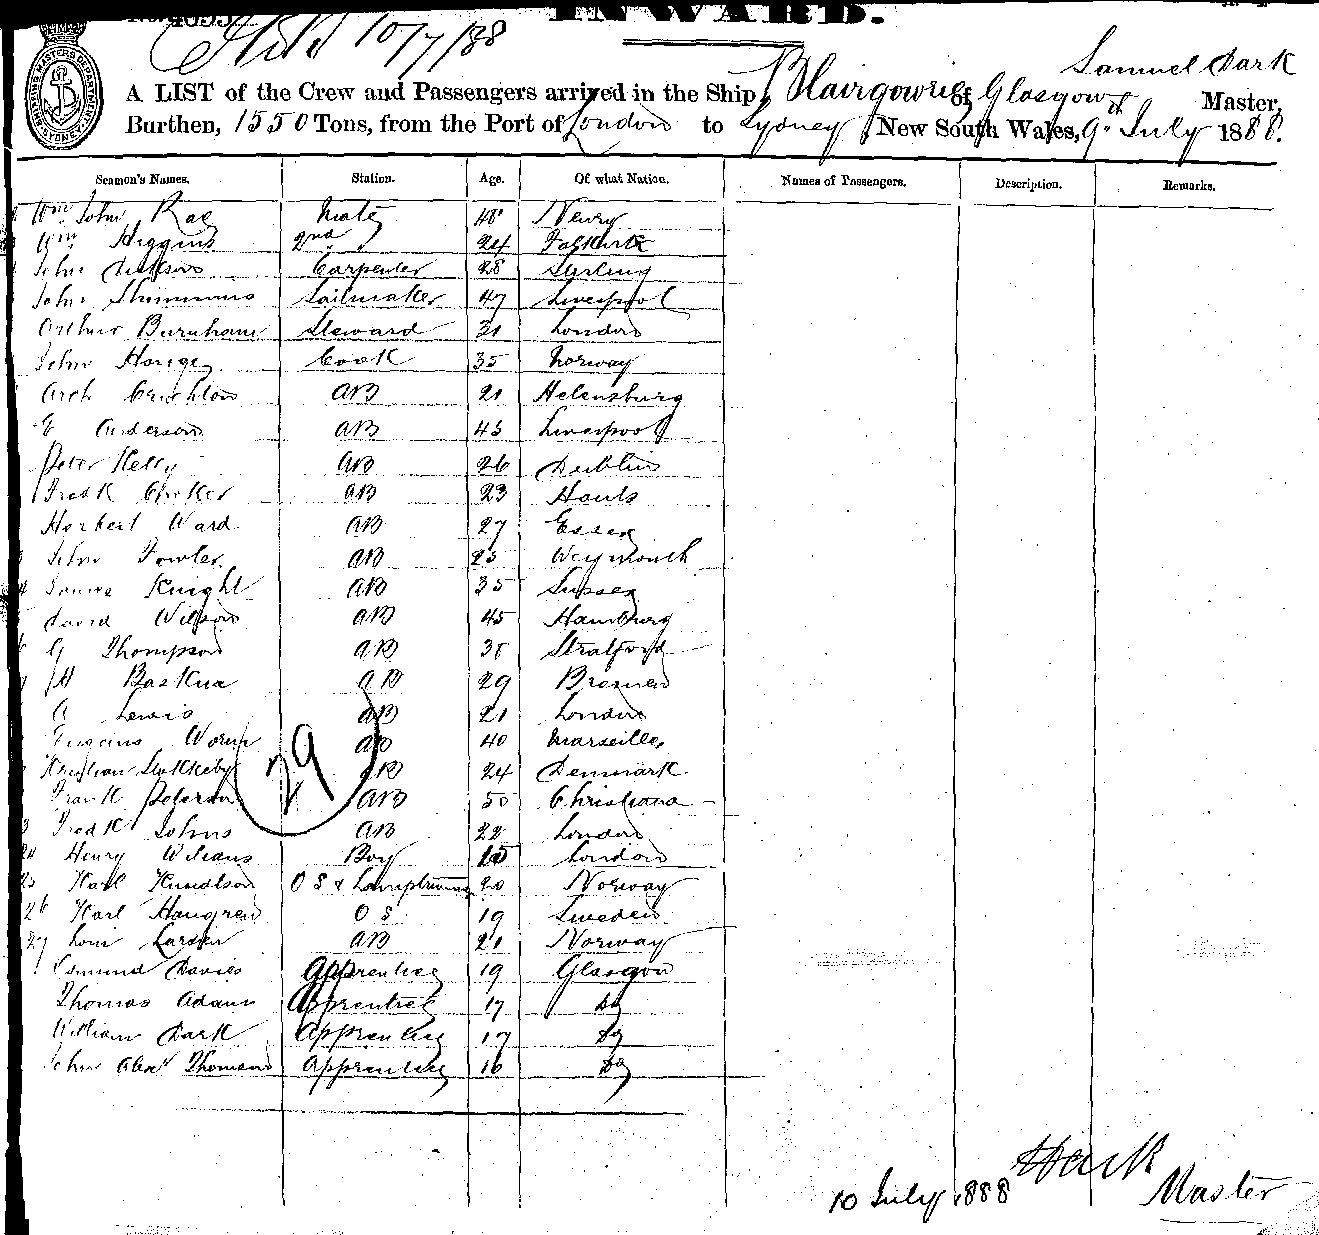 INWARD.
10/7/88
Samuel Dark
A LIST of the Crew and Passengers arrived in the Ship Blairgowrie of Glasgow Master,
Burthen, 1550 Tons, from the Port of London to Sydney New South Wales, 9th July 1888.
Seamen's Names. Station. Age. Of what Nation. Names of Passengers. Description. Remarks.
Wm John Rae Mate 48 Newry
Wm Higgins 2nd " 24 Falkirk
John Carpenter 28 Stirling
John Shimmins Sailmaker 47 Liverpool
Arthur Burnham Steward 31 London
John Hauge Cook 35 Norway
Arch Crichton AB 21 Helensburg
E Anderson AB 45 Liverpool
Peter Kelly AB 26 Dublin
Fredk AB 23 Hants
Herbert Ward AB 27 Essex
John Fowler AB 25 Weymouth
James Knight AB 35 Sussex
David Wilson AB 45 Hamburg
G Thompson AB 38 Stratford
H AB 29 Bremen
A Lewis AB 21 London
AB 40 Marseilles
29
AB 24 Denmark
Frank Peterson AB 50 Christiana
Fredk Johns AB 22 London
24 Henry Boy 15 London
25 Karl Knudtson OS & Lamptrimmer 20 Norway
26 Karl Haugren OS 19 Sweden
27 Larsen AB 21 Norway
Edmund Davies Apprentice 19 Glasgow
Thomas Adams Apprentice 17 Do
William Dark Apprentice 17 Do
John Alex Thomson Apprentice 16 Do
SDark
10 July 1888 Master